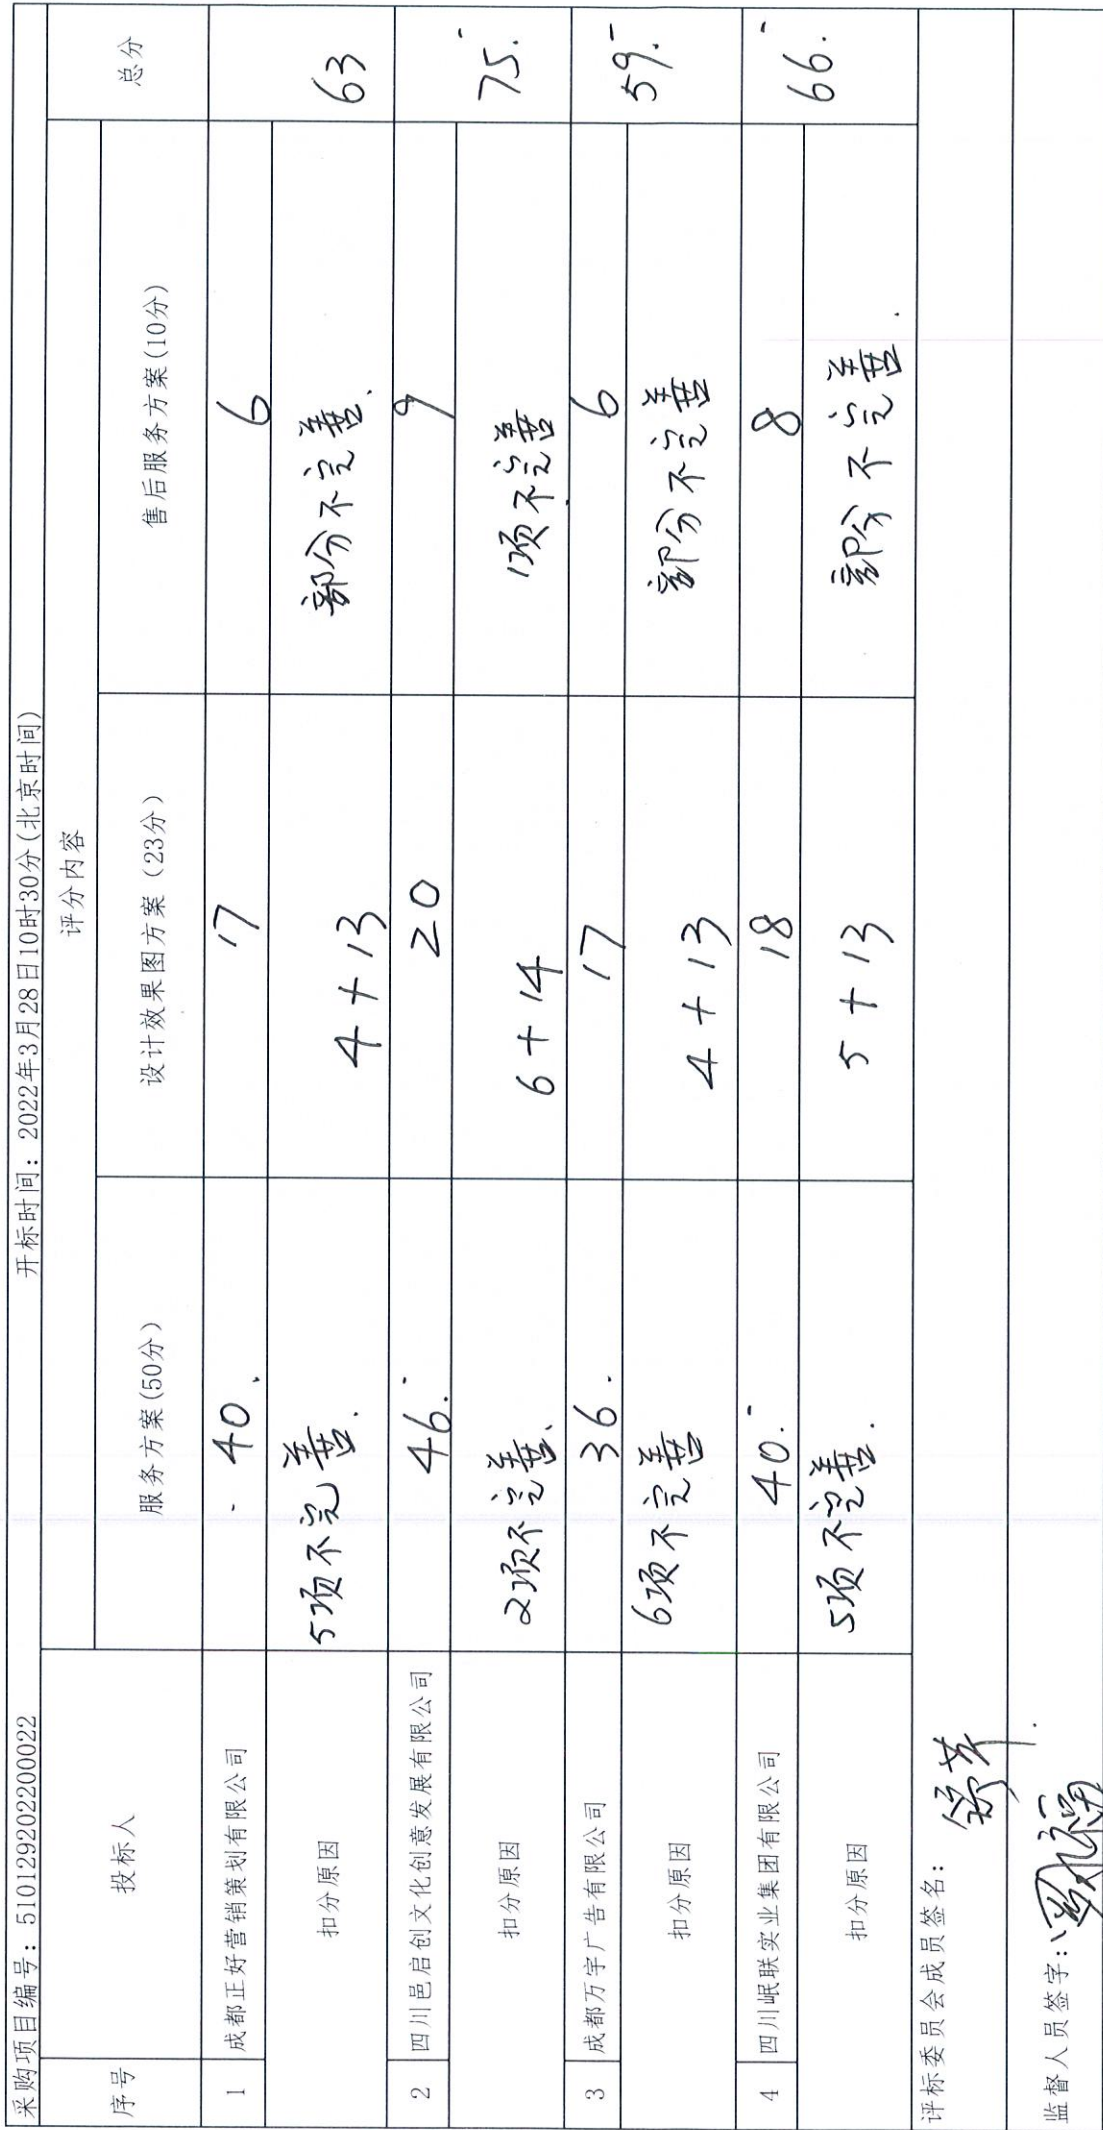 采购项目编号：510129202200022 开标时间：2022年3月28日10时30分(北京时间)
序号 投标人 评分内容 总分
服务方案(50分) 设计效果图方案（23分） 售后服务方案(10分)
1 成都正好营销策划有限公司 40. 17 6 63
扣分原因 5项不完善. 4+13 部分不完善.
2 四川邑启创文化创意发展有限公司 46. 20 9 75.
扣分原因 2项不完善. 6+14 1项不完善
3 成都万宇广告有限公司 36. 17 6 59.
扣分原因 6项不完善 4+13 部分不完善
4 四川岷联实业集团有限公司 40. 18 8 66.
扣分原因 5项不完善. 5+13 部分不完善.
评标委员会成员签名：
监督人员签字：